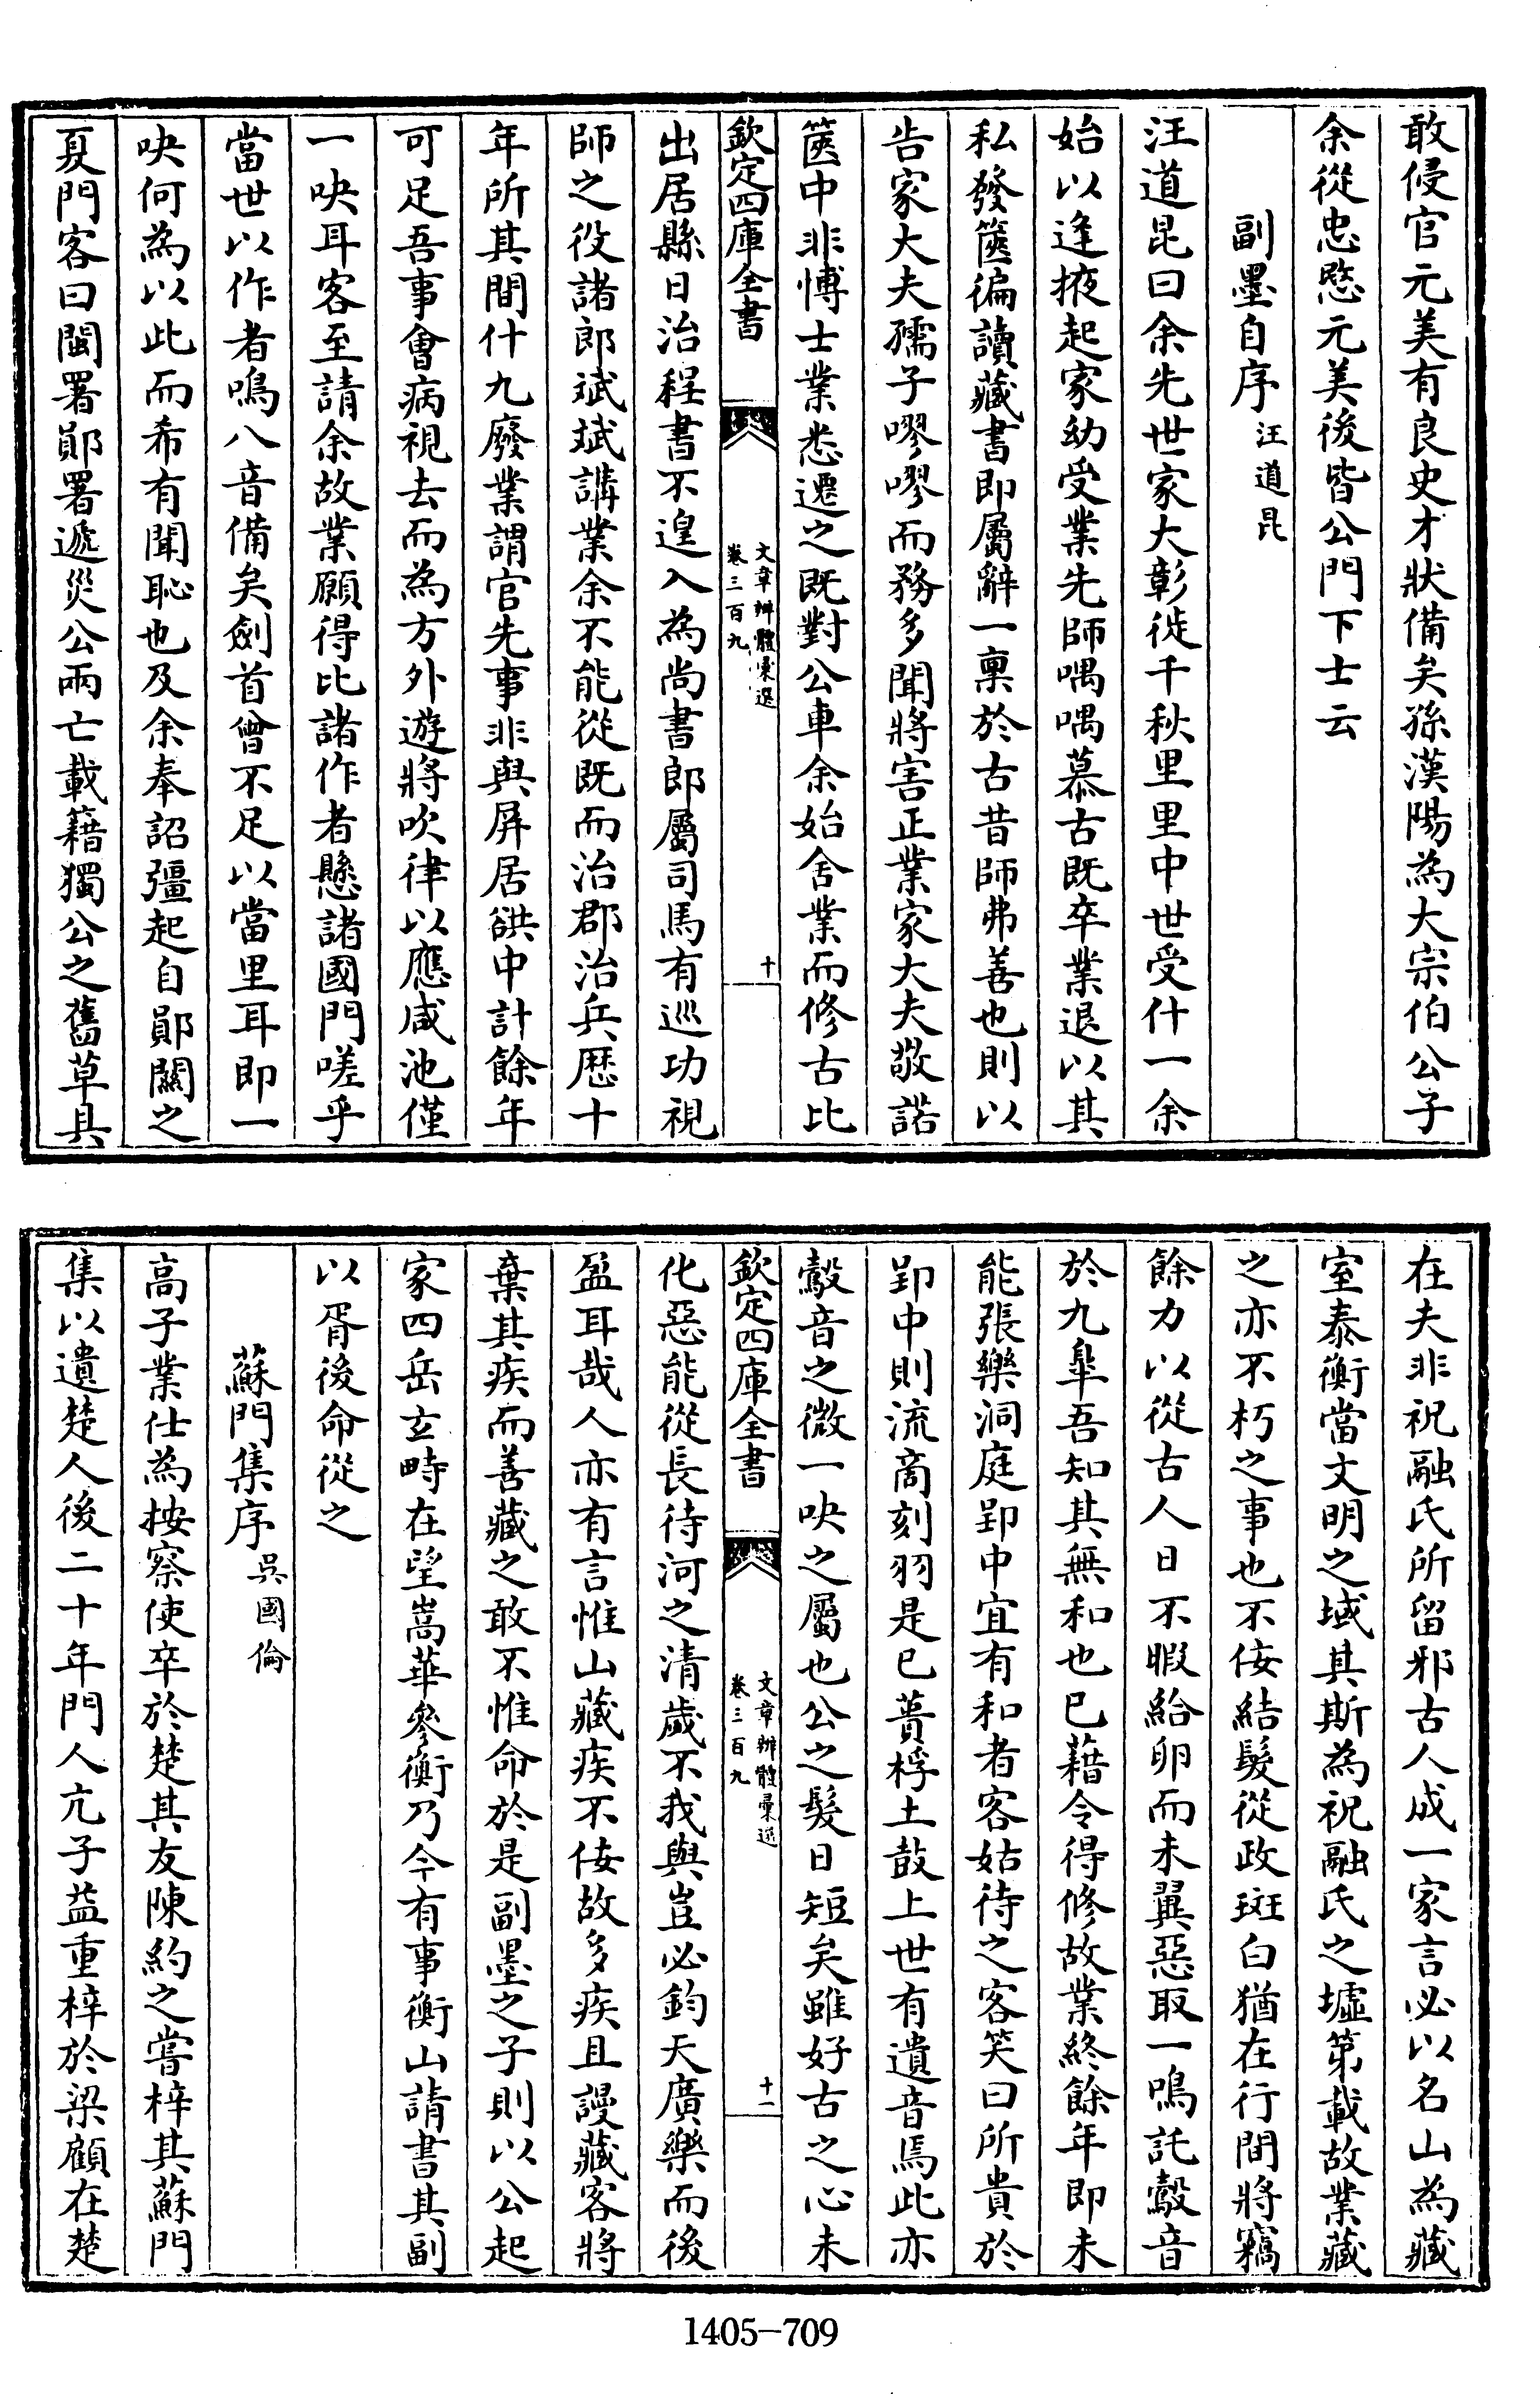 敢侵官元美有良史才狀備矣孫漢陽為大宗伯公子
余從忠愍元美後皆公門下士云
副墨自序 汪道昆
汪道昆曰余先世家大彰徙千秋里里中世受什一余
始以逢掖起家幼受業先師喁喁慕古既卒業退以其
私發篋徧讀藏書即屬辭一稟於古昔師弗善也則以
告家大夫孺子嘐嘐而務多聞將害正業家大夫敬諾
篋中非博士業悉遷之既對公車余始舍業而修古比
欽定四庫全書 文章辨體彙選 卷三百九 十
出居縣日治程書不遑入為尚書郎屬司馬有巡功視
師之役諸郎斌斌講業余不能從既而治郡治兵歷十
年所其間什九廢業謂官先事非與屏居谼中計餘年
可足吾事會病視去而為方外遊將吹律以應咸池僅
一吷耳客至請余故業願得比諸作者懸諸國門嗟乎
當世以作者鳴八音備矣劍首曾不足以當里耳即一
吷何為以此而希有聞恥也及余奉詔彊起自鄖關之
夏門客曰閩署鄖署遞災公兩亡載籍獨公之舊草具
在夫非祝融氏所留邪古人成一家言必以名山為藏
室泰衡當文明之域其斯為祝融氏之墟第載故業藏
之亦不朽之事也不佞結髮從政斑白猶在行間將竊
餘力以從古人日不暇給卵而未翼惡取一鳴託鷇音
於九臯吾知其無和也已藉令得修故業終餘年即未
能張樂洞庭郢中宜有和者客姑待之客笑曰所貴於
郢中則流啇刻羽是已蕢桴土鼓上世有遺音焉此亦
鷇音之微一吷之屬也公之髮日短矣雖好古之心未
欽定四庫全書 文章辨體彙選 卷三百九 十一
化惡能從長待河之清歲不我與豈必鈞天廣樂而後
盈耳哉人亦有言惟山藏疾不佞故多疾且謾藏客將
棄其疾而善藏之敢不惟命於是副墨之子則以公起
家四岳玄畤在望嵩華參衡乃今有事衡山請書其副
以胥後命從之
蘇門集序 吳國倫
高子業仕為按察使卒於楚其友陳約之嘗梓其蘇門
集以遺楚人後二十年門人亢子益重梓於梁顧在楚
1405-709